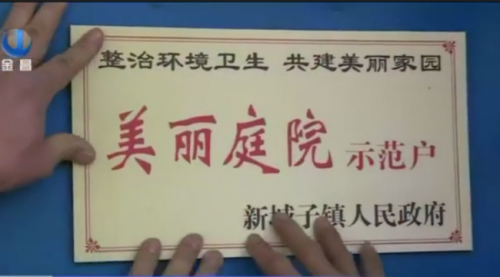 金昌
整治环境卫生 共建美丽家园
美丽庭院 示范户
新城子镇人民政府